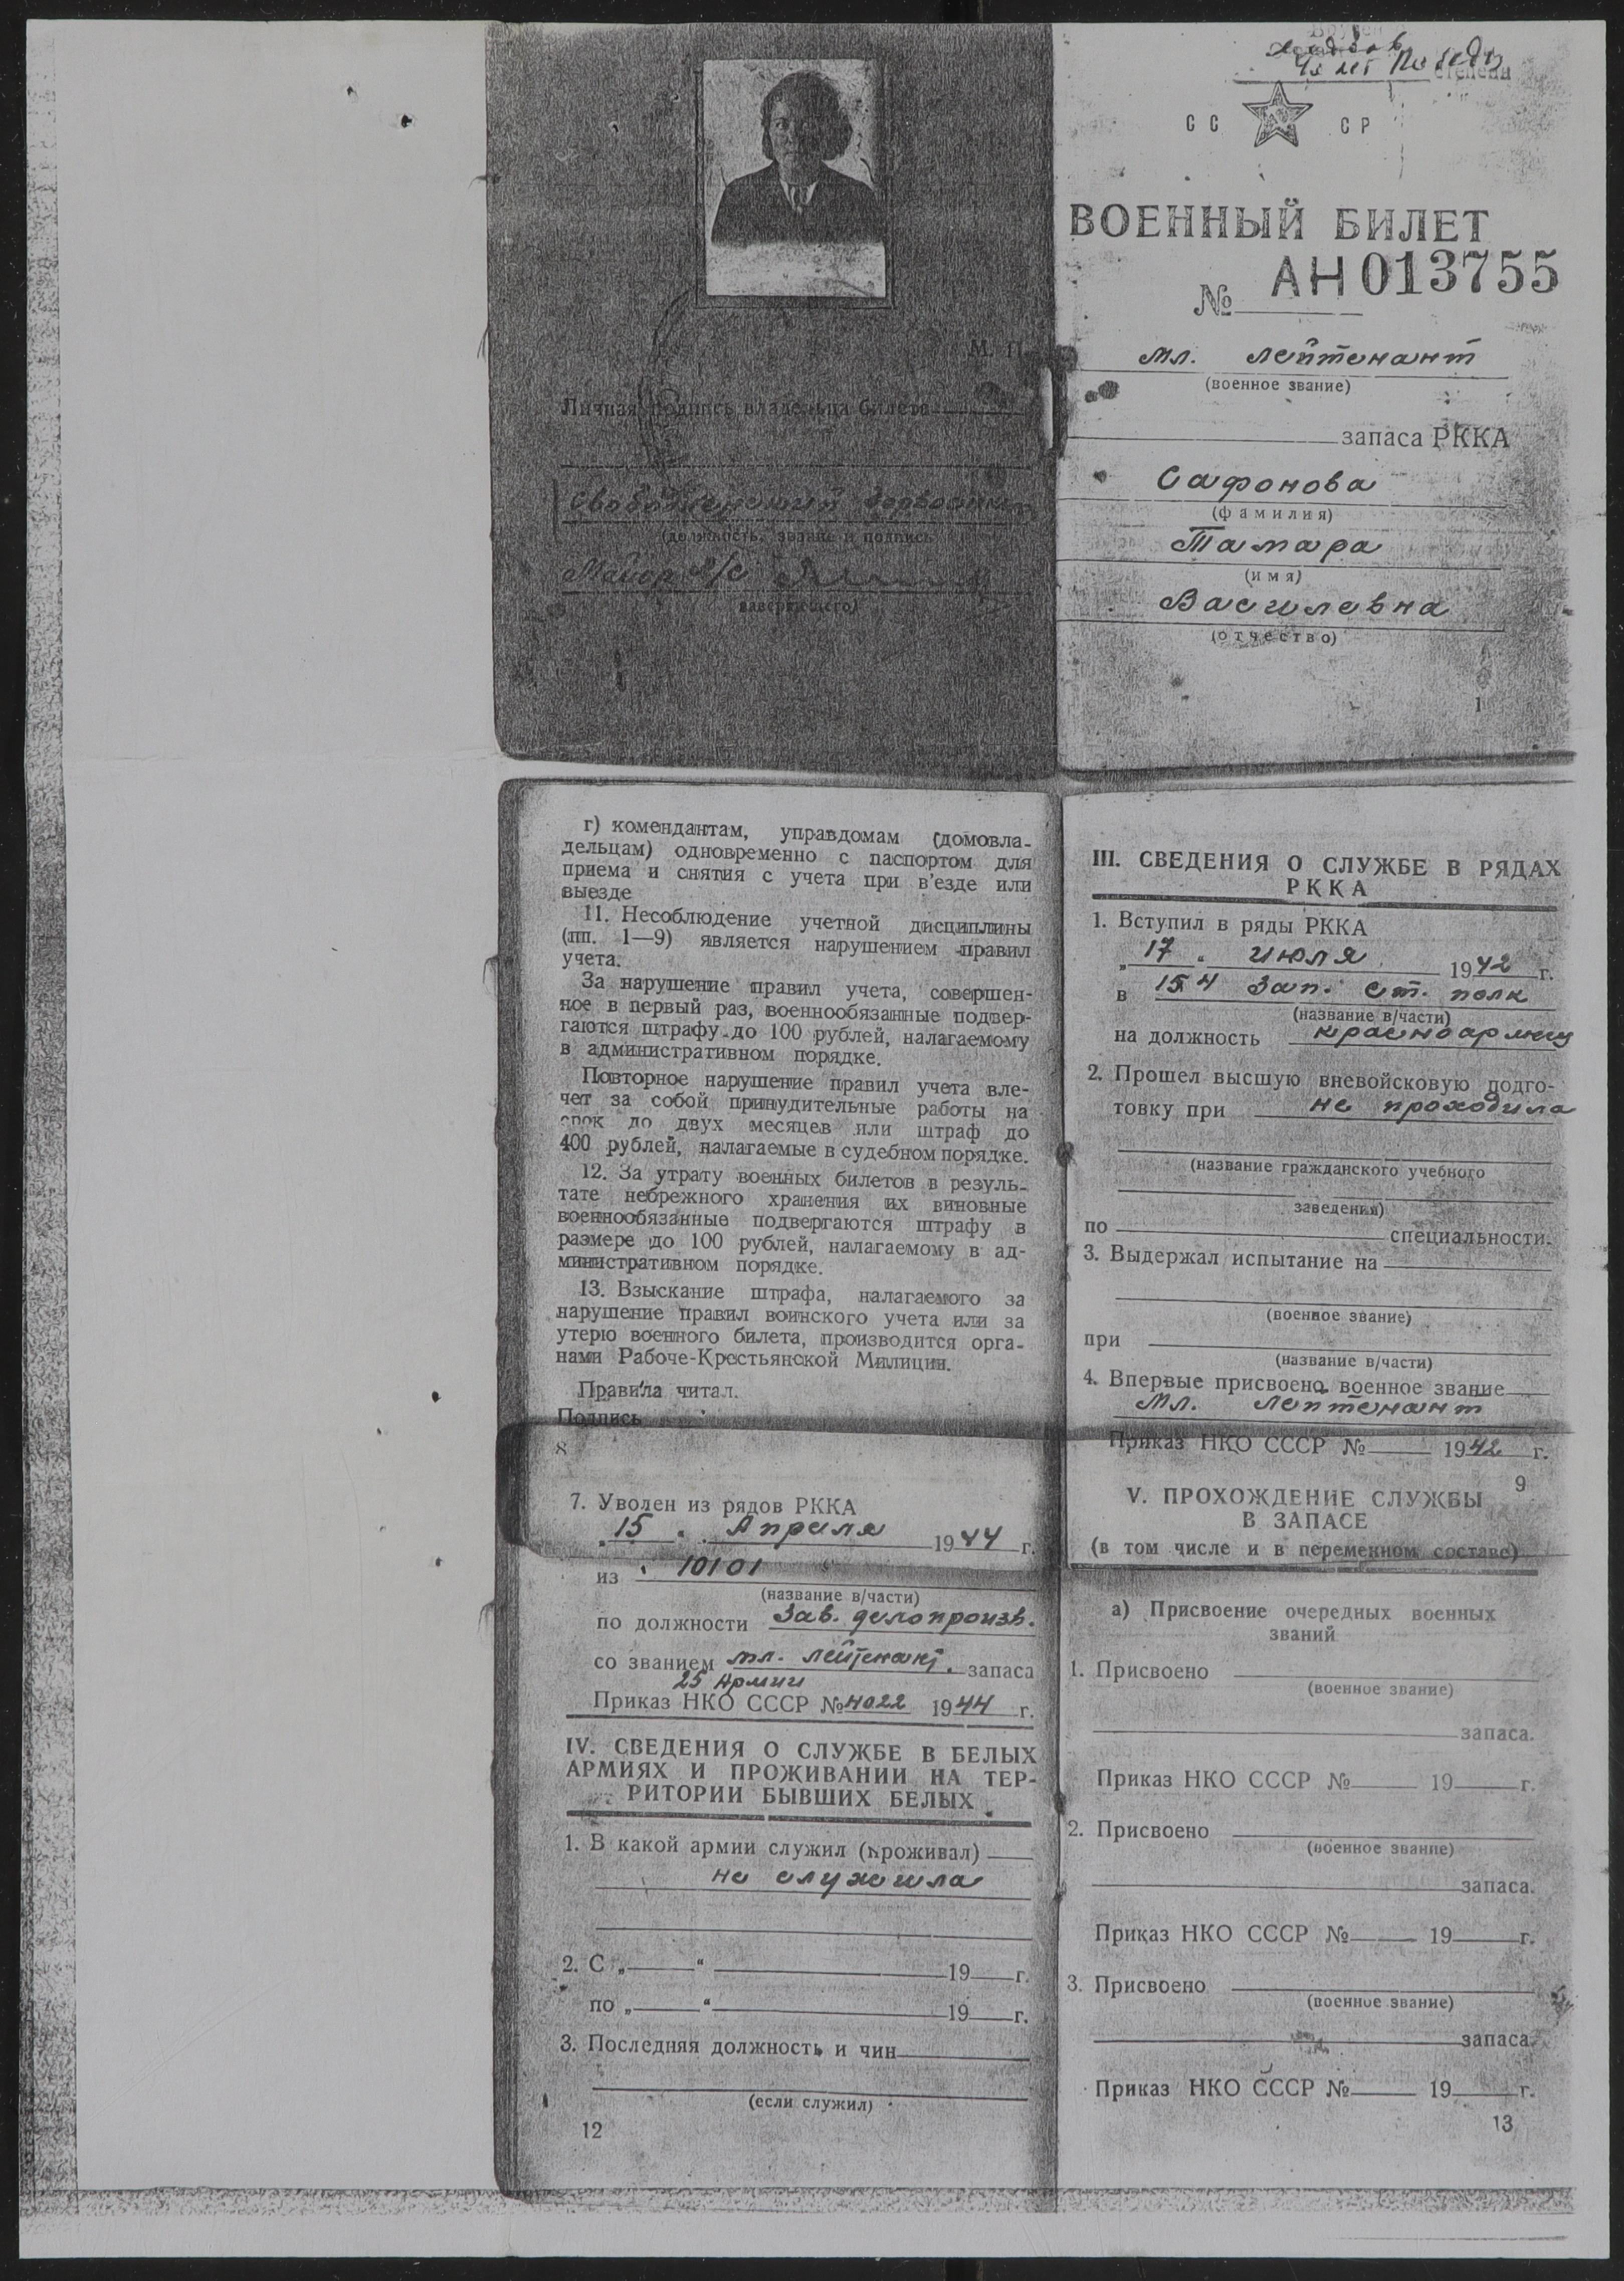 М. П.
Личная подпись владельца билета
(должность, звание и подпись
Майор а/с
заверяющего)
40 лет Победы
степени
СС СР
ВОЕННЫЙ БИЛЕТ
№ АН 013755
мл. лейтенант
(военное звание)
запаса РККА
Сафонова
(фамилия)
Тамара
(имя)
Васильевна
(отчество)
1
г) комендантам, управдомам (домовла-
дельцам) одновременно с паспортом для
приема и снятия с учета при в'езде или
выезде
11. Несоблюдение учетной дисциплины
(пп. 1—9) является нарушением правил
учета.
За нарушение правил учета, совершен-
ное в первый раз, военнообязанные подвер-
гаются штрафу до 100 рублей, налагаемому
в административном порядке.
Повторное нарушение правил учета вле-
чет за собой принудительные работы на
срок до двух месяцев или штраф до
400 рублей, налагаемые в судебном порядке.
12. За утрату военных билетов в резуль-
тате небрежного хранения их виновные
военнообязанные подвергаются штрафу в
размере до 100 рублей, налагаемому в ад-
министративном порядке.
13. Взыскание штрафа, налагаемого за
нарушение правил воинского учета или за
утерю военного билета, производится орга-
нами Рабоче-Крестьянской Милиции.
Правила читал.
Подпись
8
III. СВЕДЕНИЯ О СЛУЖБЕ В РЯДАХ
РККА
1. Вступил в ряды РККА
„ 17 “ июля 1942 г.
в 154 Зап. ст. полк
(название в/части)
на должность красноармеец
2. Прошел высшую вневойсковую подго-
товку при не проходила
(название гражданского учебного
заведения)
по специальности.
3. Выдержал испытание на
(военное звание)
при
(название в/части)
4. Впервые присвоено военное звание
Мл. лейтенант
Приказ НКО СССР № 1942 г.
9
7. Уволен из рядов РККА
„ 15 “ Апреля 1944 г.
из 10101
(название в/части)
по должности Зав. делопроизв.
со званием мл. лейтенант. запаса
25 Армии
Приказ НКО СССР № 4022 1944 г.
IV. СВЕДЕНИЯ О СЛУЖБЕ В БЕЛЫХ
АРМИЯХ И ПРОЖИВАНИИ НА ТЕР-
РИТОРИИ БЫВШИХ БЕЛЫХ
1. В какой армии служил (проживал)
не служила
2. С „ “ 19 г.
по „ “ 19 г.
3. Последняя должность и чин
(если служил)
12
V. ПРОХОЖДЕНИЕ СЛУЖБЫ
В ЗАПАСЕ
(в том числе и в переменном составе)
а) Присвоение очередных военных
званий
1. Присвоено
(военное звание)
запаса.
Приказ НКО СССР № 19 г.
2. Присвоено
(военное звание)
запаса.
Приказ НКО СССР № 19 г.
3. Присвоено
(военное звание)
запаса.
Приказ НКО СССР № 19 г.
13